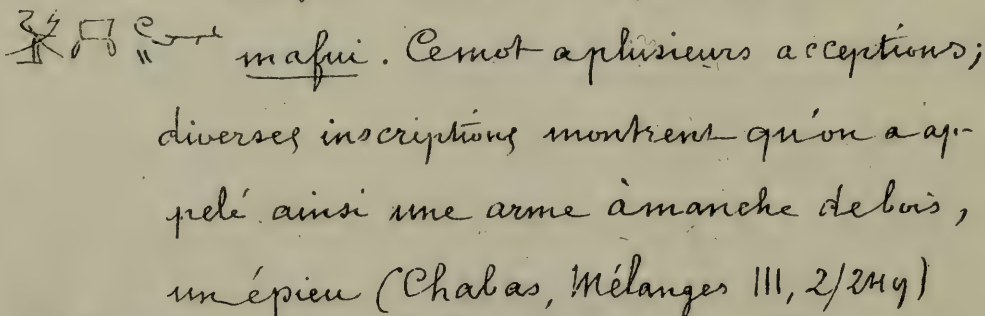 mafui. Ce mot a plusieurs acceptions;
diverses inscriptions montrent qu'on a ap-
pelé ainsi une arme à manche de bois,
un épieu (Chabas, Mélanges III, 2/249)